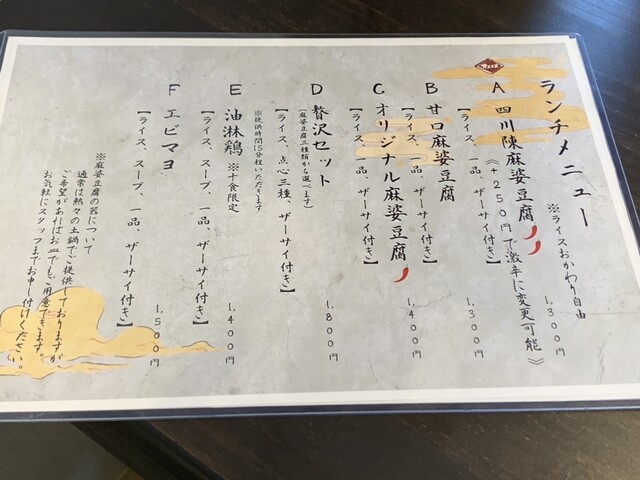 ランチメニュー
※ライスおかわり自由
A 四川陳麻婆豆腐 1,300円
《+250円で激辛に変更可能》
【ライス、一品、ザーサイ付き】
B 甘口麻婆豆腐 1,300円
【ライス、一品、ザーサイ付き】
C オリジナル麻婆豆腐 1,400円
【ライス、一品、ザーサイ付き】
D 贅沢セット 1,800円
(麻婆豆腐三種類から選べます)
【ライス、点心三種、ザーサイ付き】
※提供時間15分程いただきます
E 油淋鶏 ※十食限定 1,400円
【ライス、スープ、一品、ザーサイ付き】
F エビマヨ 1,500円
【ライス、スープ、一品、ザーサイ付き】
※麻婆豆腐の器について
通常は熱々の土鍋でご提供しておりますが
ご希望があればお皿でもご用意できます。
お気軽にスタッフまでお申し付けください。